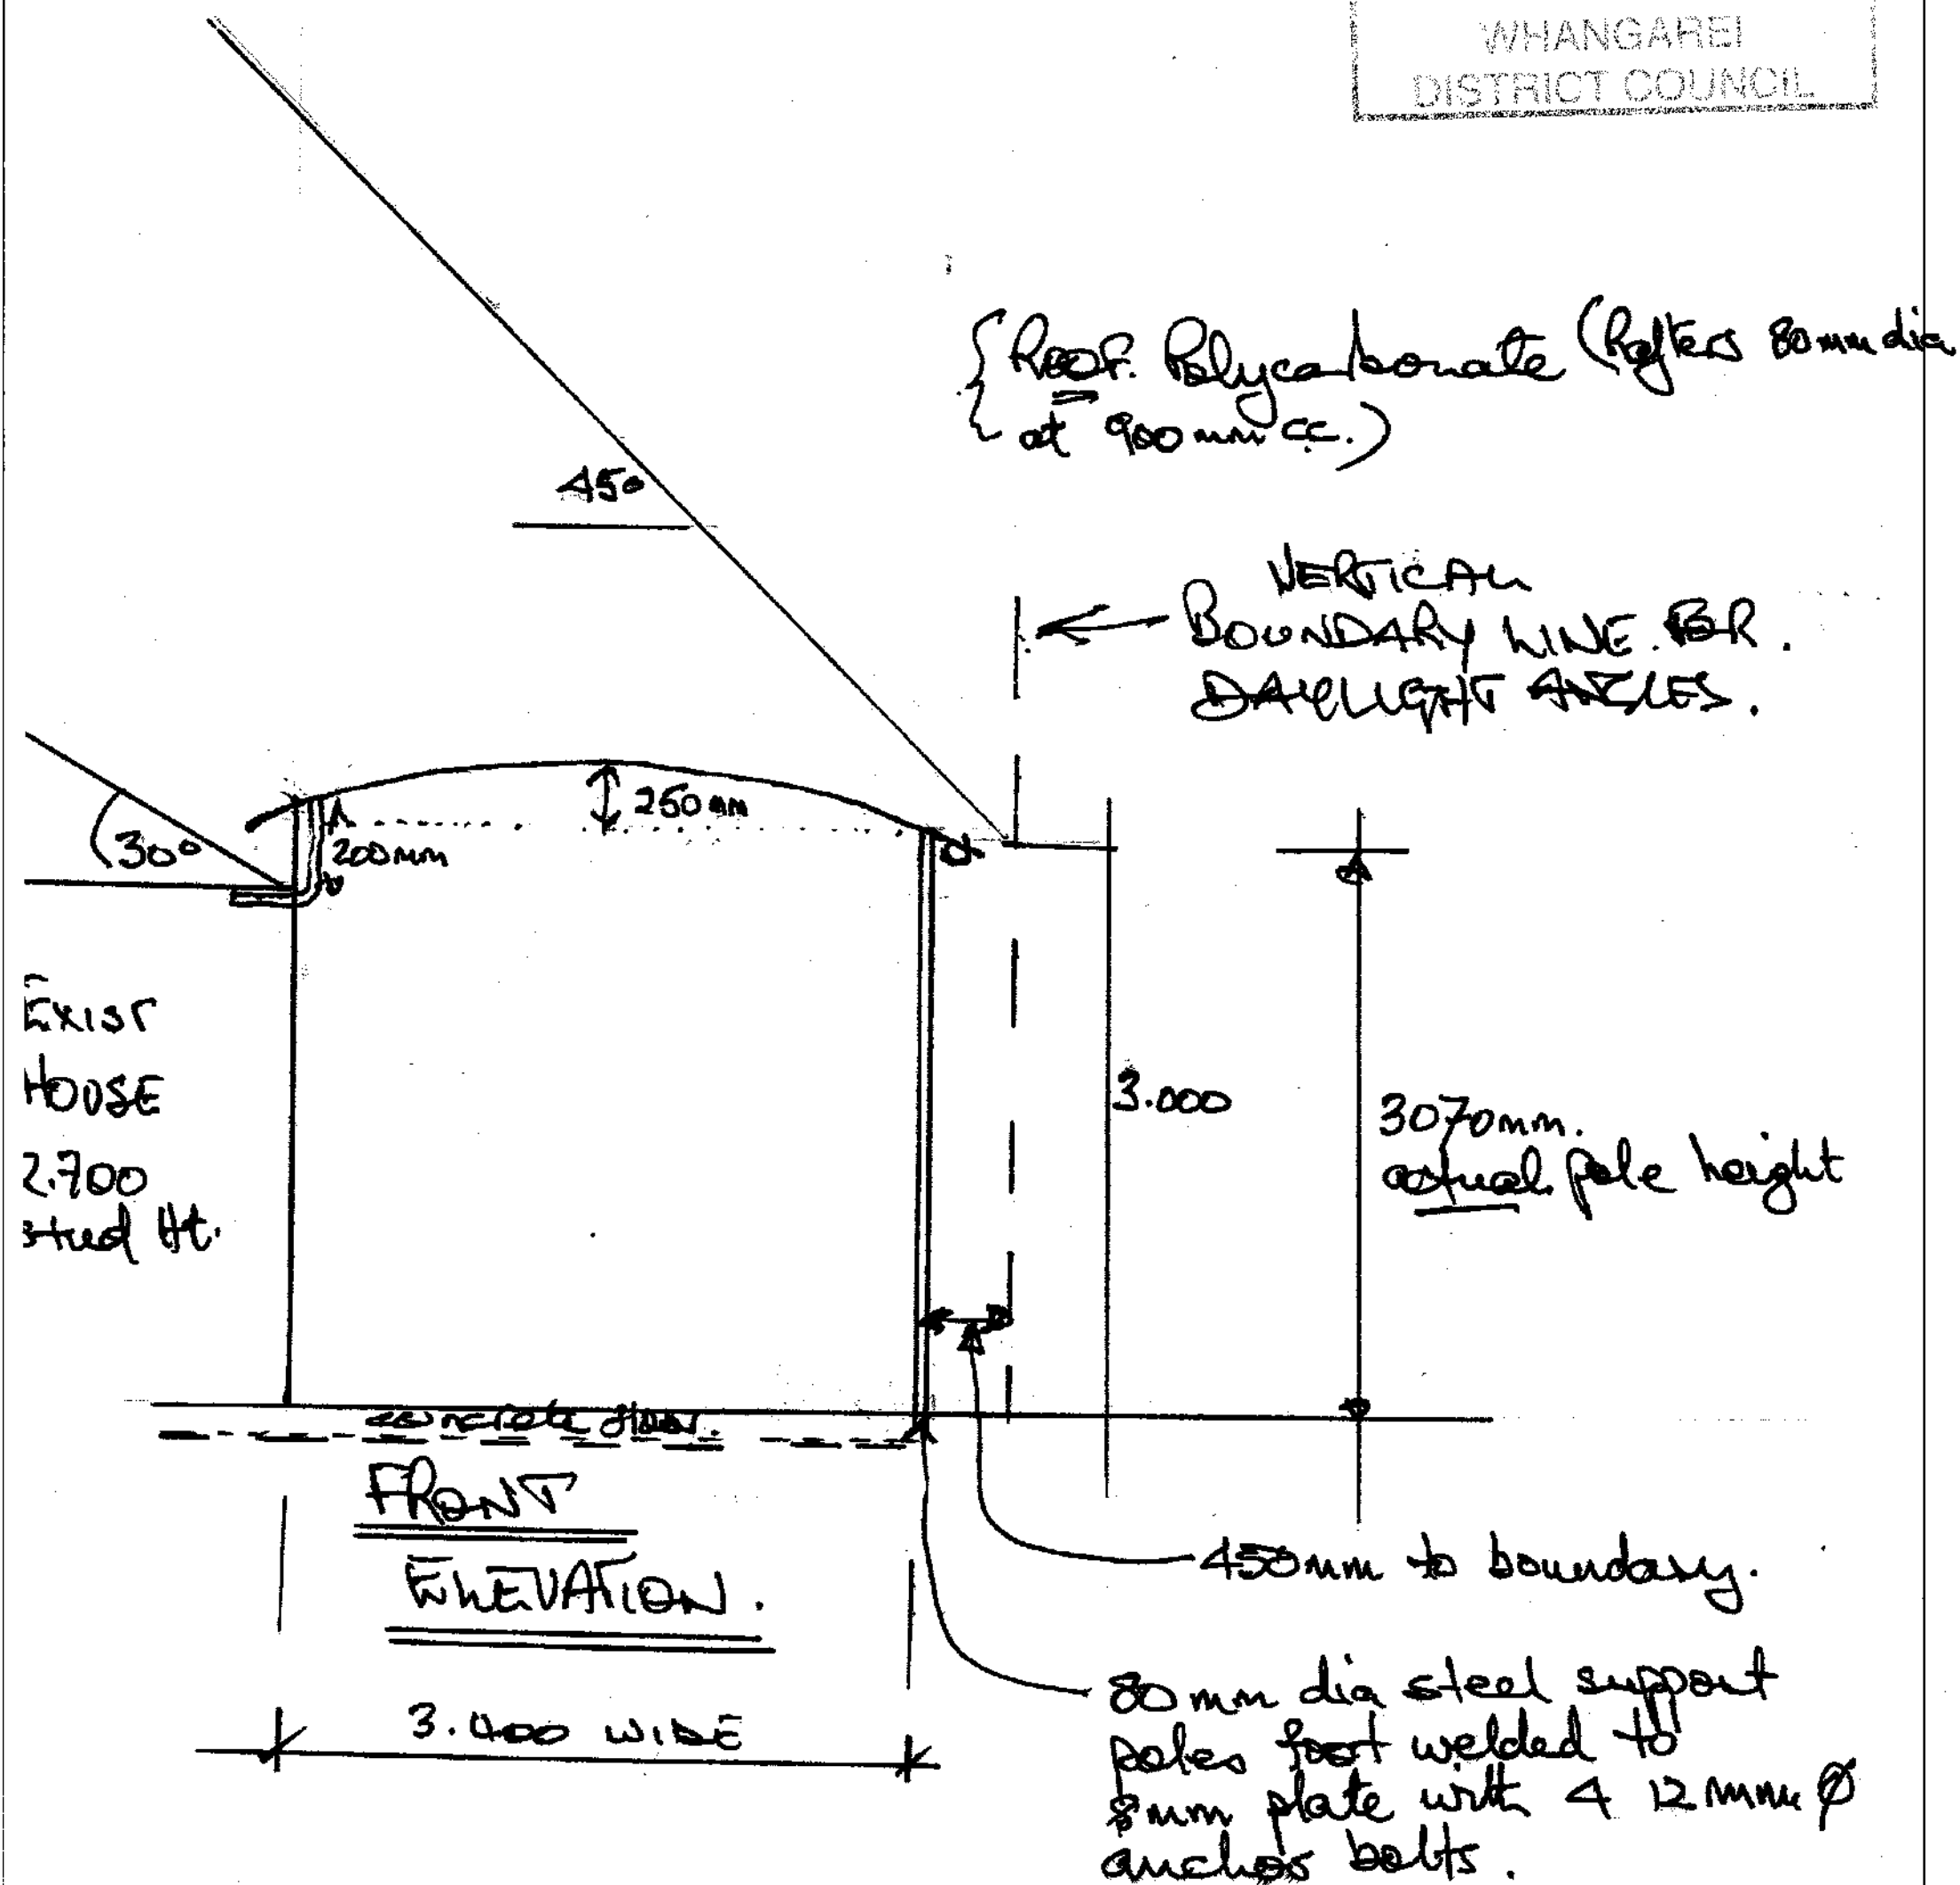 WHANGAREI
DISTRICT COUNCIL
{ ROOF. Polycarbonate (Rafters 80mm dia
at 900mm cc.)
45°
VERTICAL
BOUNDARY LINE FOR.
DAYLIGHT ANGLES.
250mm
30°
200mm
EXIST
HOUSE
2.700
stud Ht.
3.000
3070mm.
actual pole height
concrete floor.
FRONT
ELEVATION.
450mm to boundary.
3.400 WIDE
80mm dia steel support
poles foot welded to
8mm plate with 4 12mm Ø
anchor bolts.